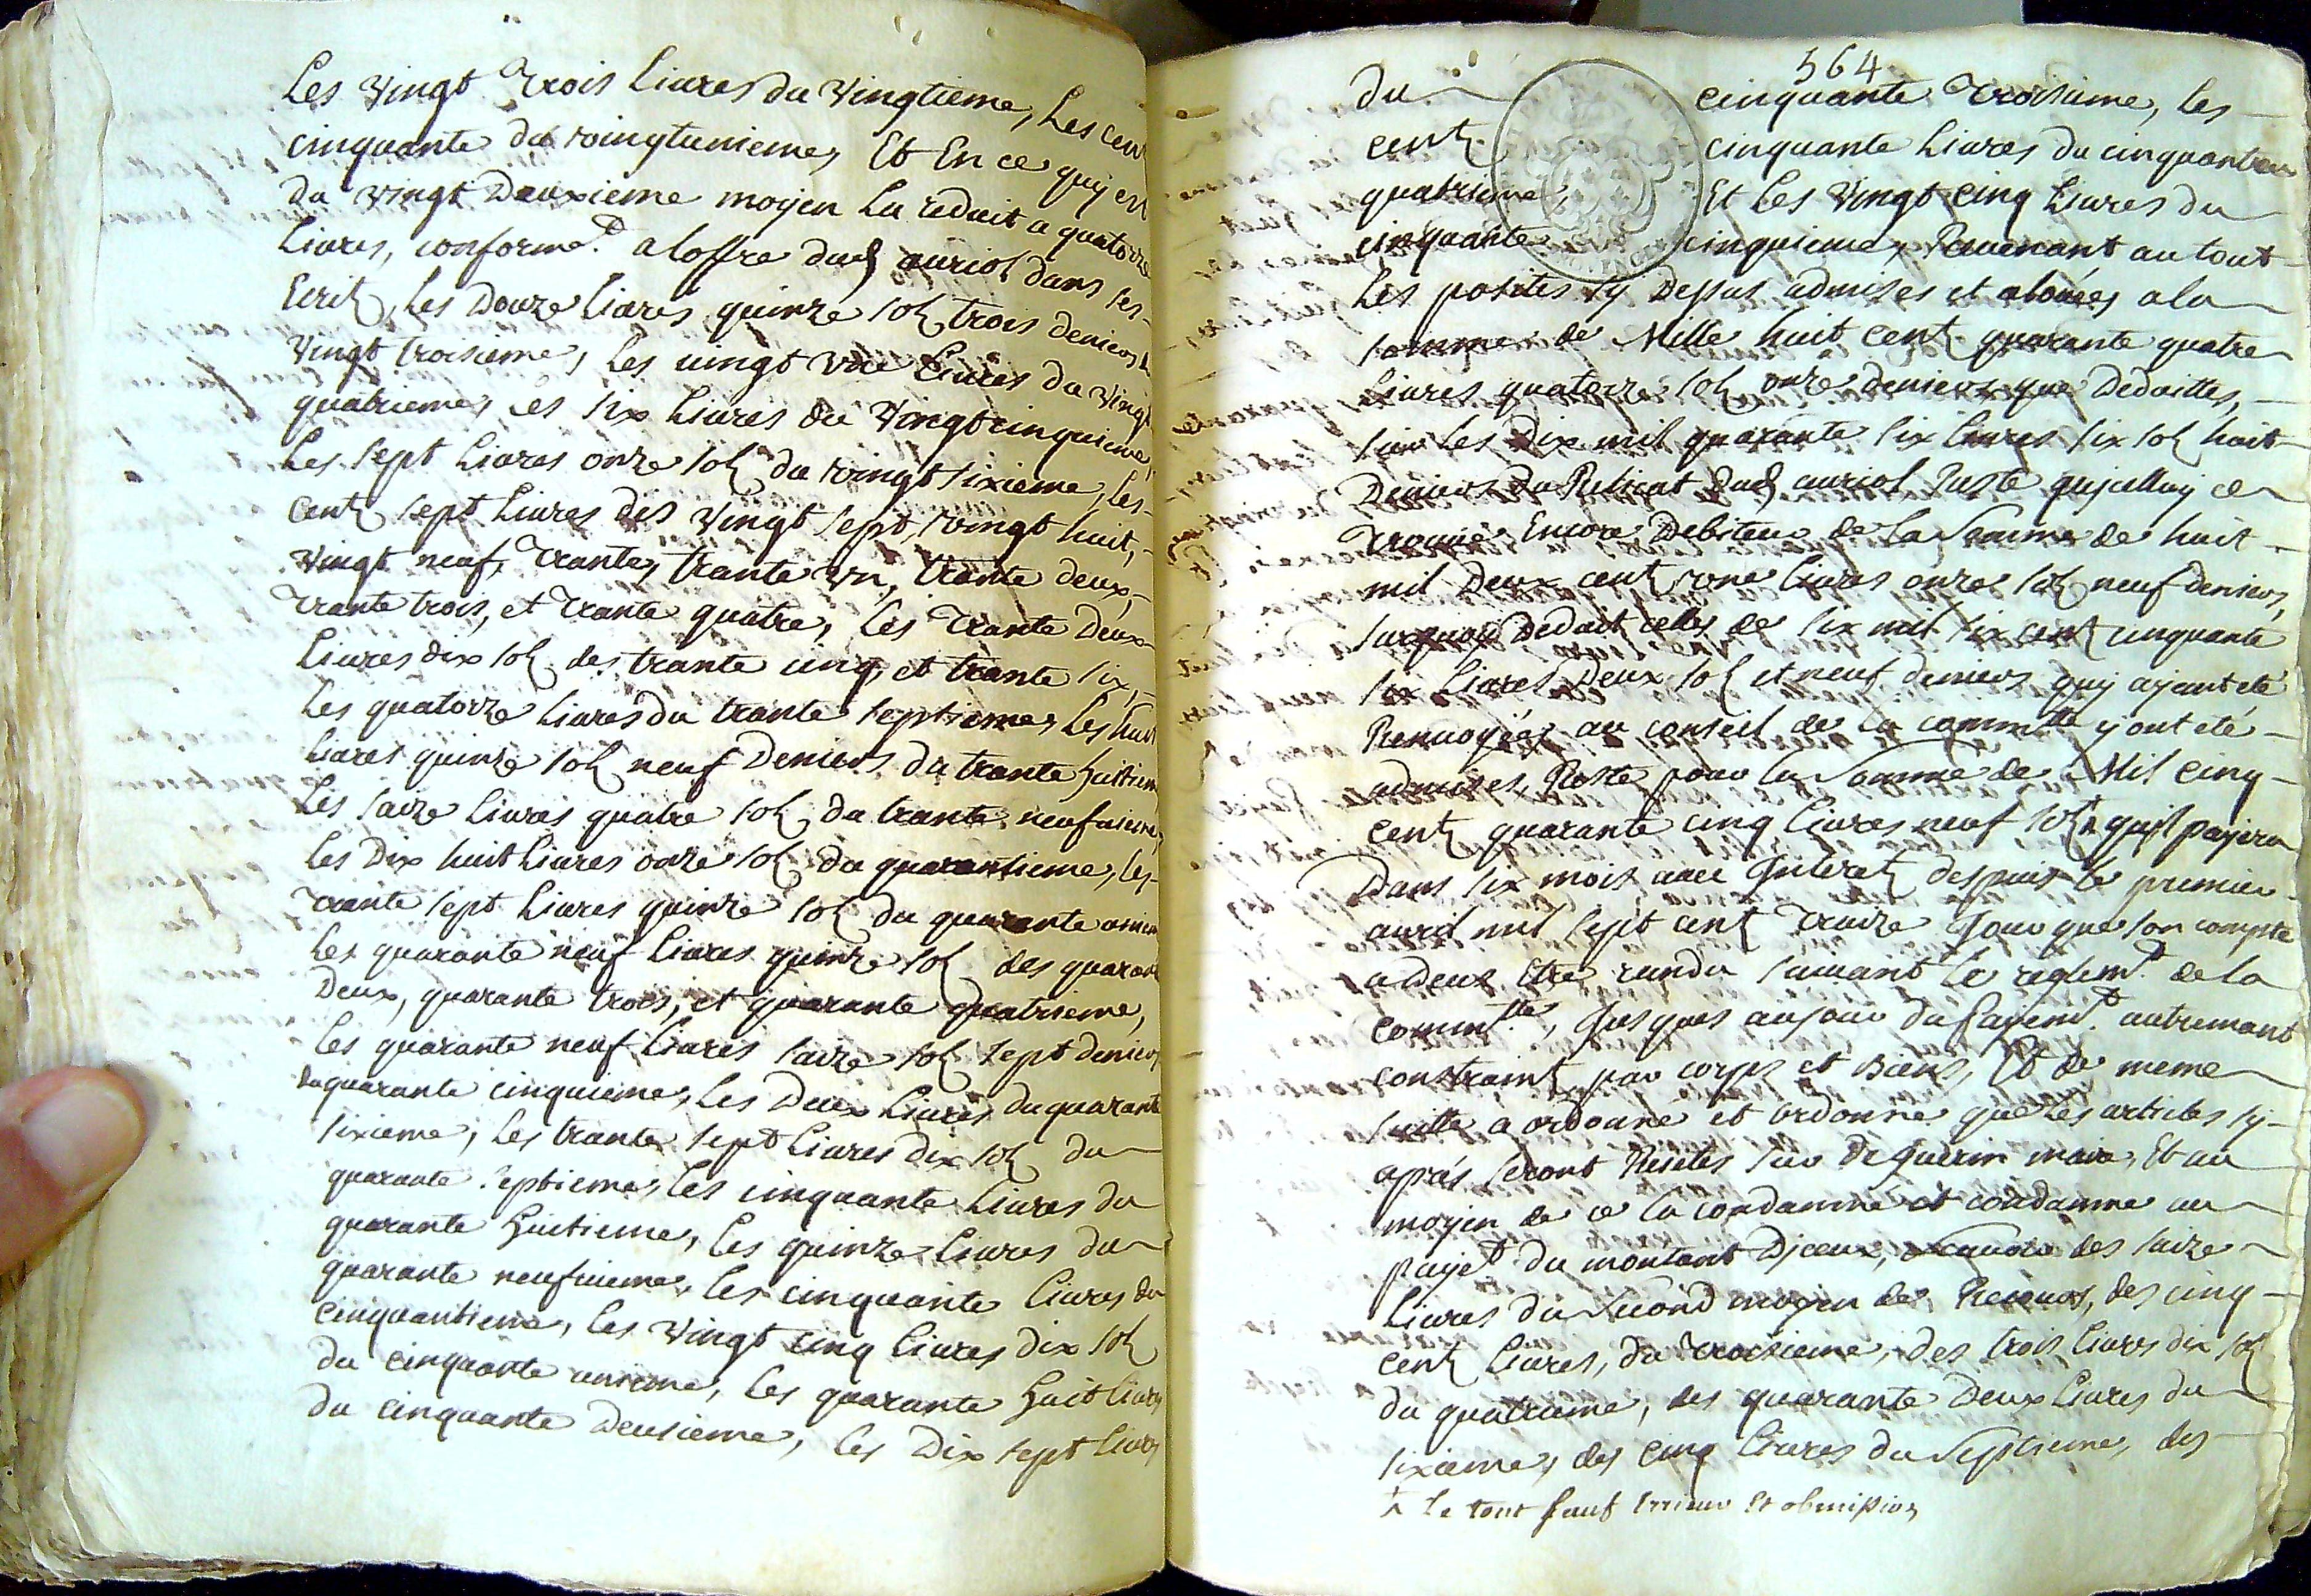 Les Vingt Trois Liures du Vingtieme, Les cent
cinquante du vingtunieme, Et En ce quy est
du vingt Deuxieme moyen La reduit a quatorze
Liures, conformet. a loffre dud auriol dans ses
Ecrit, les Douze Liures quinze sols trois deniers
Vingt troisieme, Les uingt Une Liures du Vingt
quatrieme, Les six Liures du Vingtcinquieme,
Les sept Liures onze sols du vingt sixieme, les
cent sept Liures des Vingt sept, vingt huit,
Vingt neuf, Trante, trante Un, trante deux,
Trante trois, et Trante quatre, les Trante Deux
Liures dix sols des trante cinq, et trante six,
Les quatorze Liures du trante septieme, Les huit
Liures quinze sols neuf Deniers du trante huitieme
Les saize Liures quatre sols du trante neufuieme,
Les Dix huit Liures onze sols du quarantieme, les
Trante sept Liures quinze sols du quarante unieme
Les quarante neuf Liures quinze sols des quarante
Deux, quarante trois, et quarante quatrieme,
Les quarante neuf Liures saize sols sept deniers
du quarante cinquieme, Les Deux Liures du quarante
sixieme, Les trante sept Liures Dix sols du
quarante septieme, Les cinquante Liures du
quarante huitieme, Les quinze Liures du
quarante neufuieme, Les cinquante Liures du
cinquantieme, Les Vingt cinq Liures Dix sols
du cinquante unieme, Les quarante huit Liures
du cinquante Deusieme, Les Dix sept Liures
564
du cinquante Troisieme, les
cent cinquante Liures du cinquante
quatrieme, Et Les Vingt cinq Liures du
cinquante cinquieme, Reuenant au tout
Les postes sy Dessus admises et aloüées a la
somme de Mille huit cent quarante quatre
Liures quatorze sols onze deniers que Deduittes,
sur Les Dix mil quarante six Liures six sols huit
Deniers Du Relicat dud auriol Reste quicelluy ce
Trouue Encore Debiteur de La Somme de huit
mil Deux cent une Liures onze sols neuf deniers,
surquoy Deduit celles de six mil six cent cinquante
six Liures Deux sols et neuf deniers quy ayant eté
Renuoyées au conseil de la commtté y ont eté
admises, Reste pour la Somme de Mil cinq
cent quarante cinq Liures neuf sols ⁂ quil payera
Dans six mois auec Interets despuis le premier
auril mil sept cent Traize Jour que son compte
a deub Etre randu suiuant le reglemt. de la
commtté, Jusques au jour du payemt. autremant
constraint par corps et Biens, Et de meme
suitte a ordonné et ordonne que Les articles sy
aprés seront Rejetés sur de guerin maire, Et au
moyen de ce La condamné et condamne au
payet du montant Djceux, scauoir des saize
Liures du Second moyen de Recours, des cinq
cent Liures, du Troisieme, des trois Liures dix sols
du quatrieme, des quarante Deux Liures du
sixieme, des cinq Liures du Septieme, des
⁂ le tout sauf Erreur Et obmission